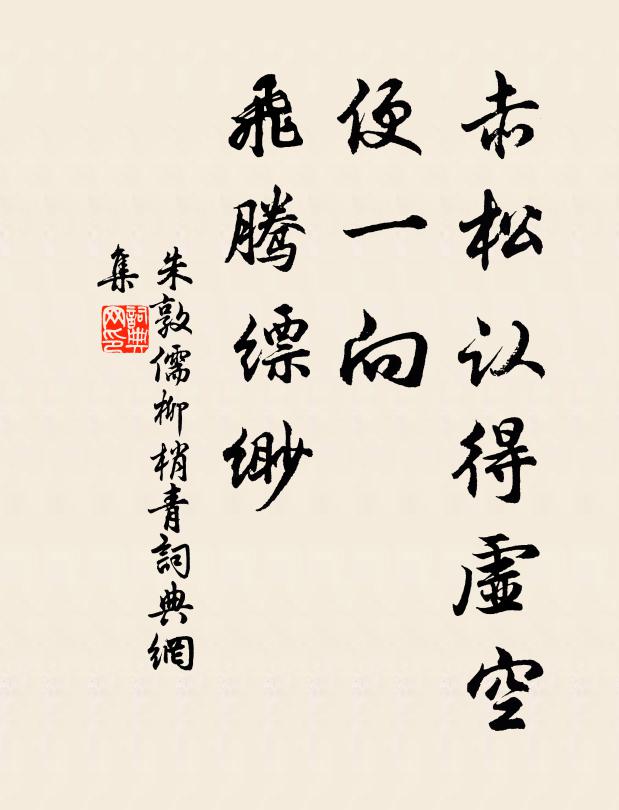 赤松认得虚空
便一向
飛騰缥缈
朱敦儒柳梢青詞典網
集
詞典
网印